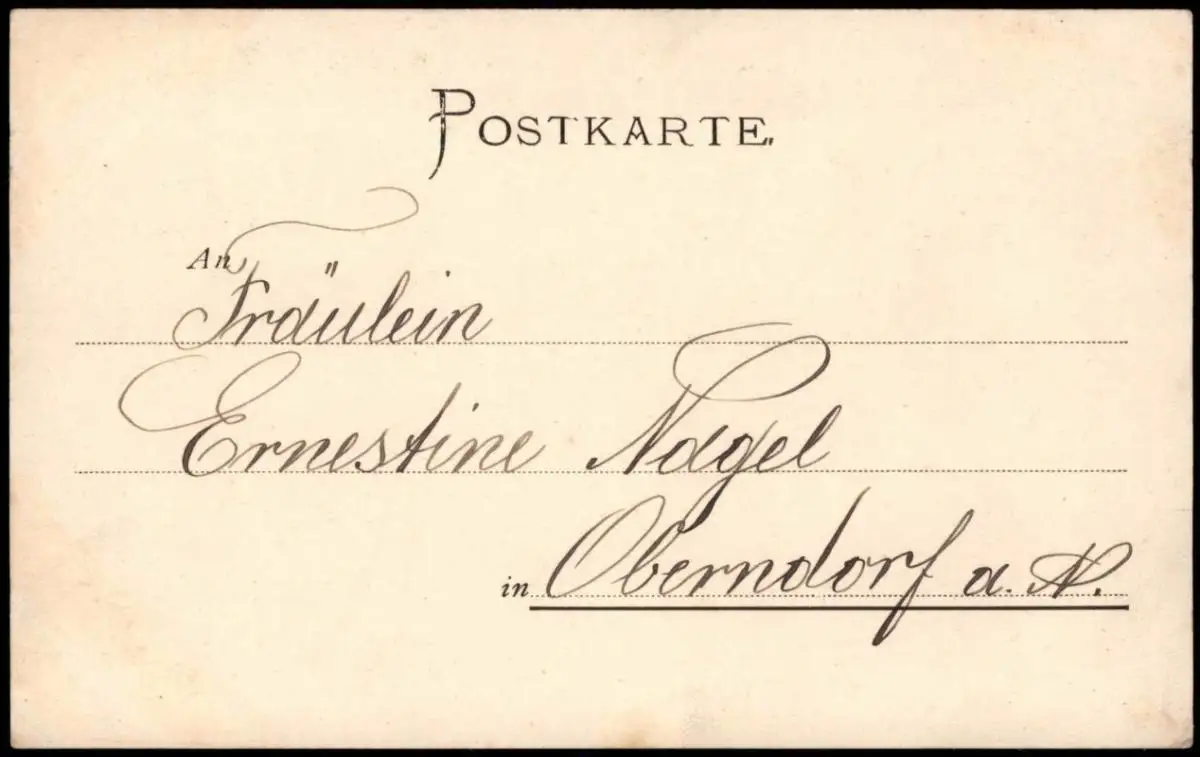 POSTKARTE.
An
Fräulein
Ernestine Nagel
in Oberndorf a. N.